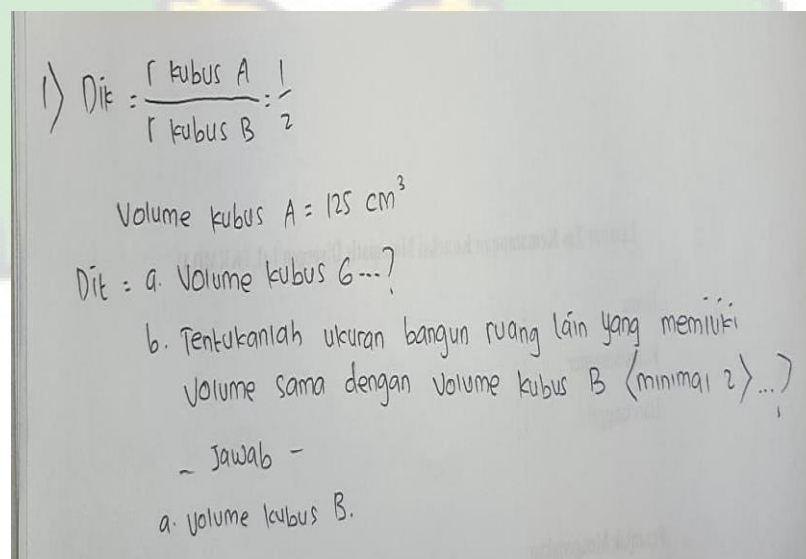 1) Dik : r kubus A / r kubus B : 1/2
Volume kubus A = 125 cm³
Dit : a. Volume kubus G...?
b. Tentukanlah ukuran bangun ruang lain yang memiliki
Volume sama dengan Volume kubus B (minimal 2)...?
- Jawab -
a. Volume kubus B.